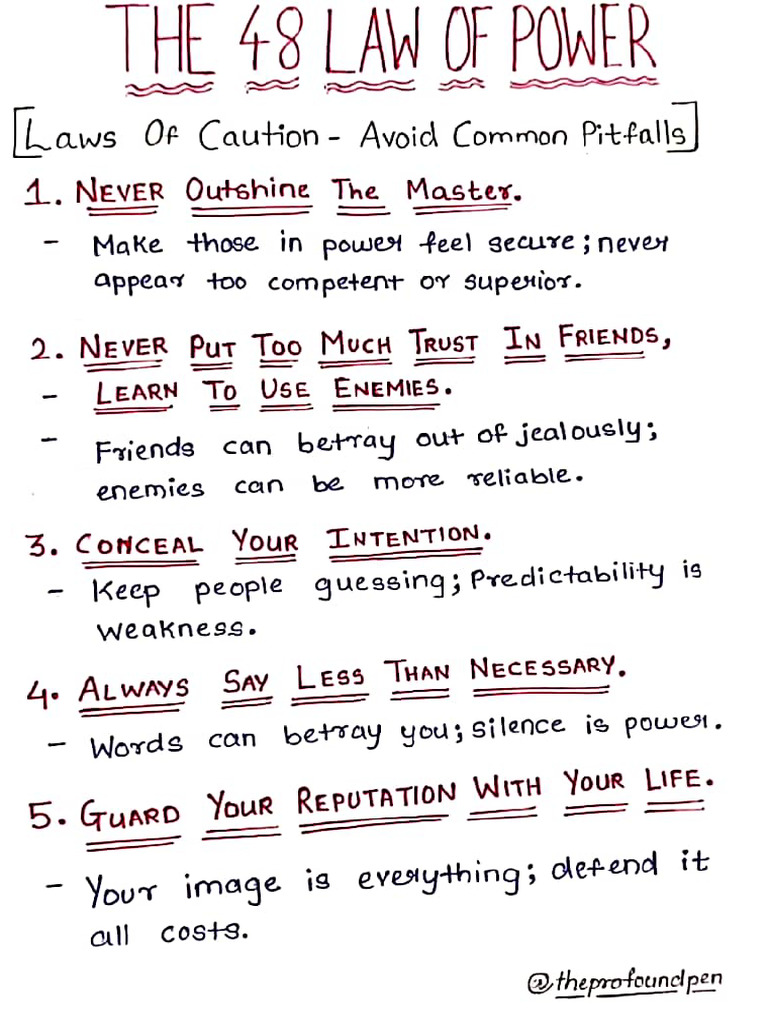 THE 48 LAW OF POWER
[Laws Of Caution - Avoid Common Pitfalls]
1. NEVER Outshine The Master.
- Make those in power feel secure; never
appear too competent or superior.
2. NEVER PUT TOO MUCH TRUST IN FRIENDS,
- LEARN TO USE ENEMIES.
- Friends can betray out of jealously;
enemies can be more reliable.
3. CONCEAL YOUR INTENTION.
- Keep people guessing; Predictability is
weakness.
4. ALWAYS SAY LESS THAN NECESSARY.
- Words can betray you; silence is power.
5. GUARD YOUR REPUTATION WITH YOUR LIFE.
- Your image is everything; defend it
all costs.
@theprofoundpen